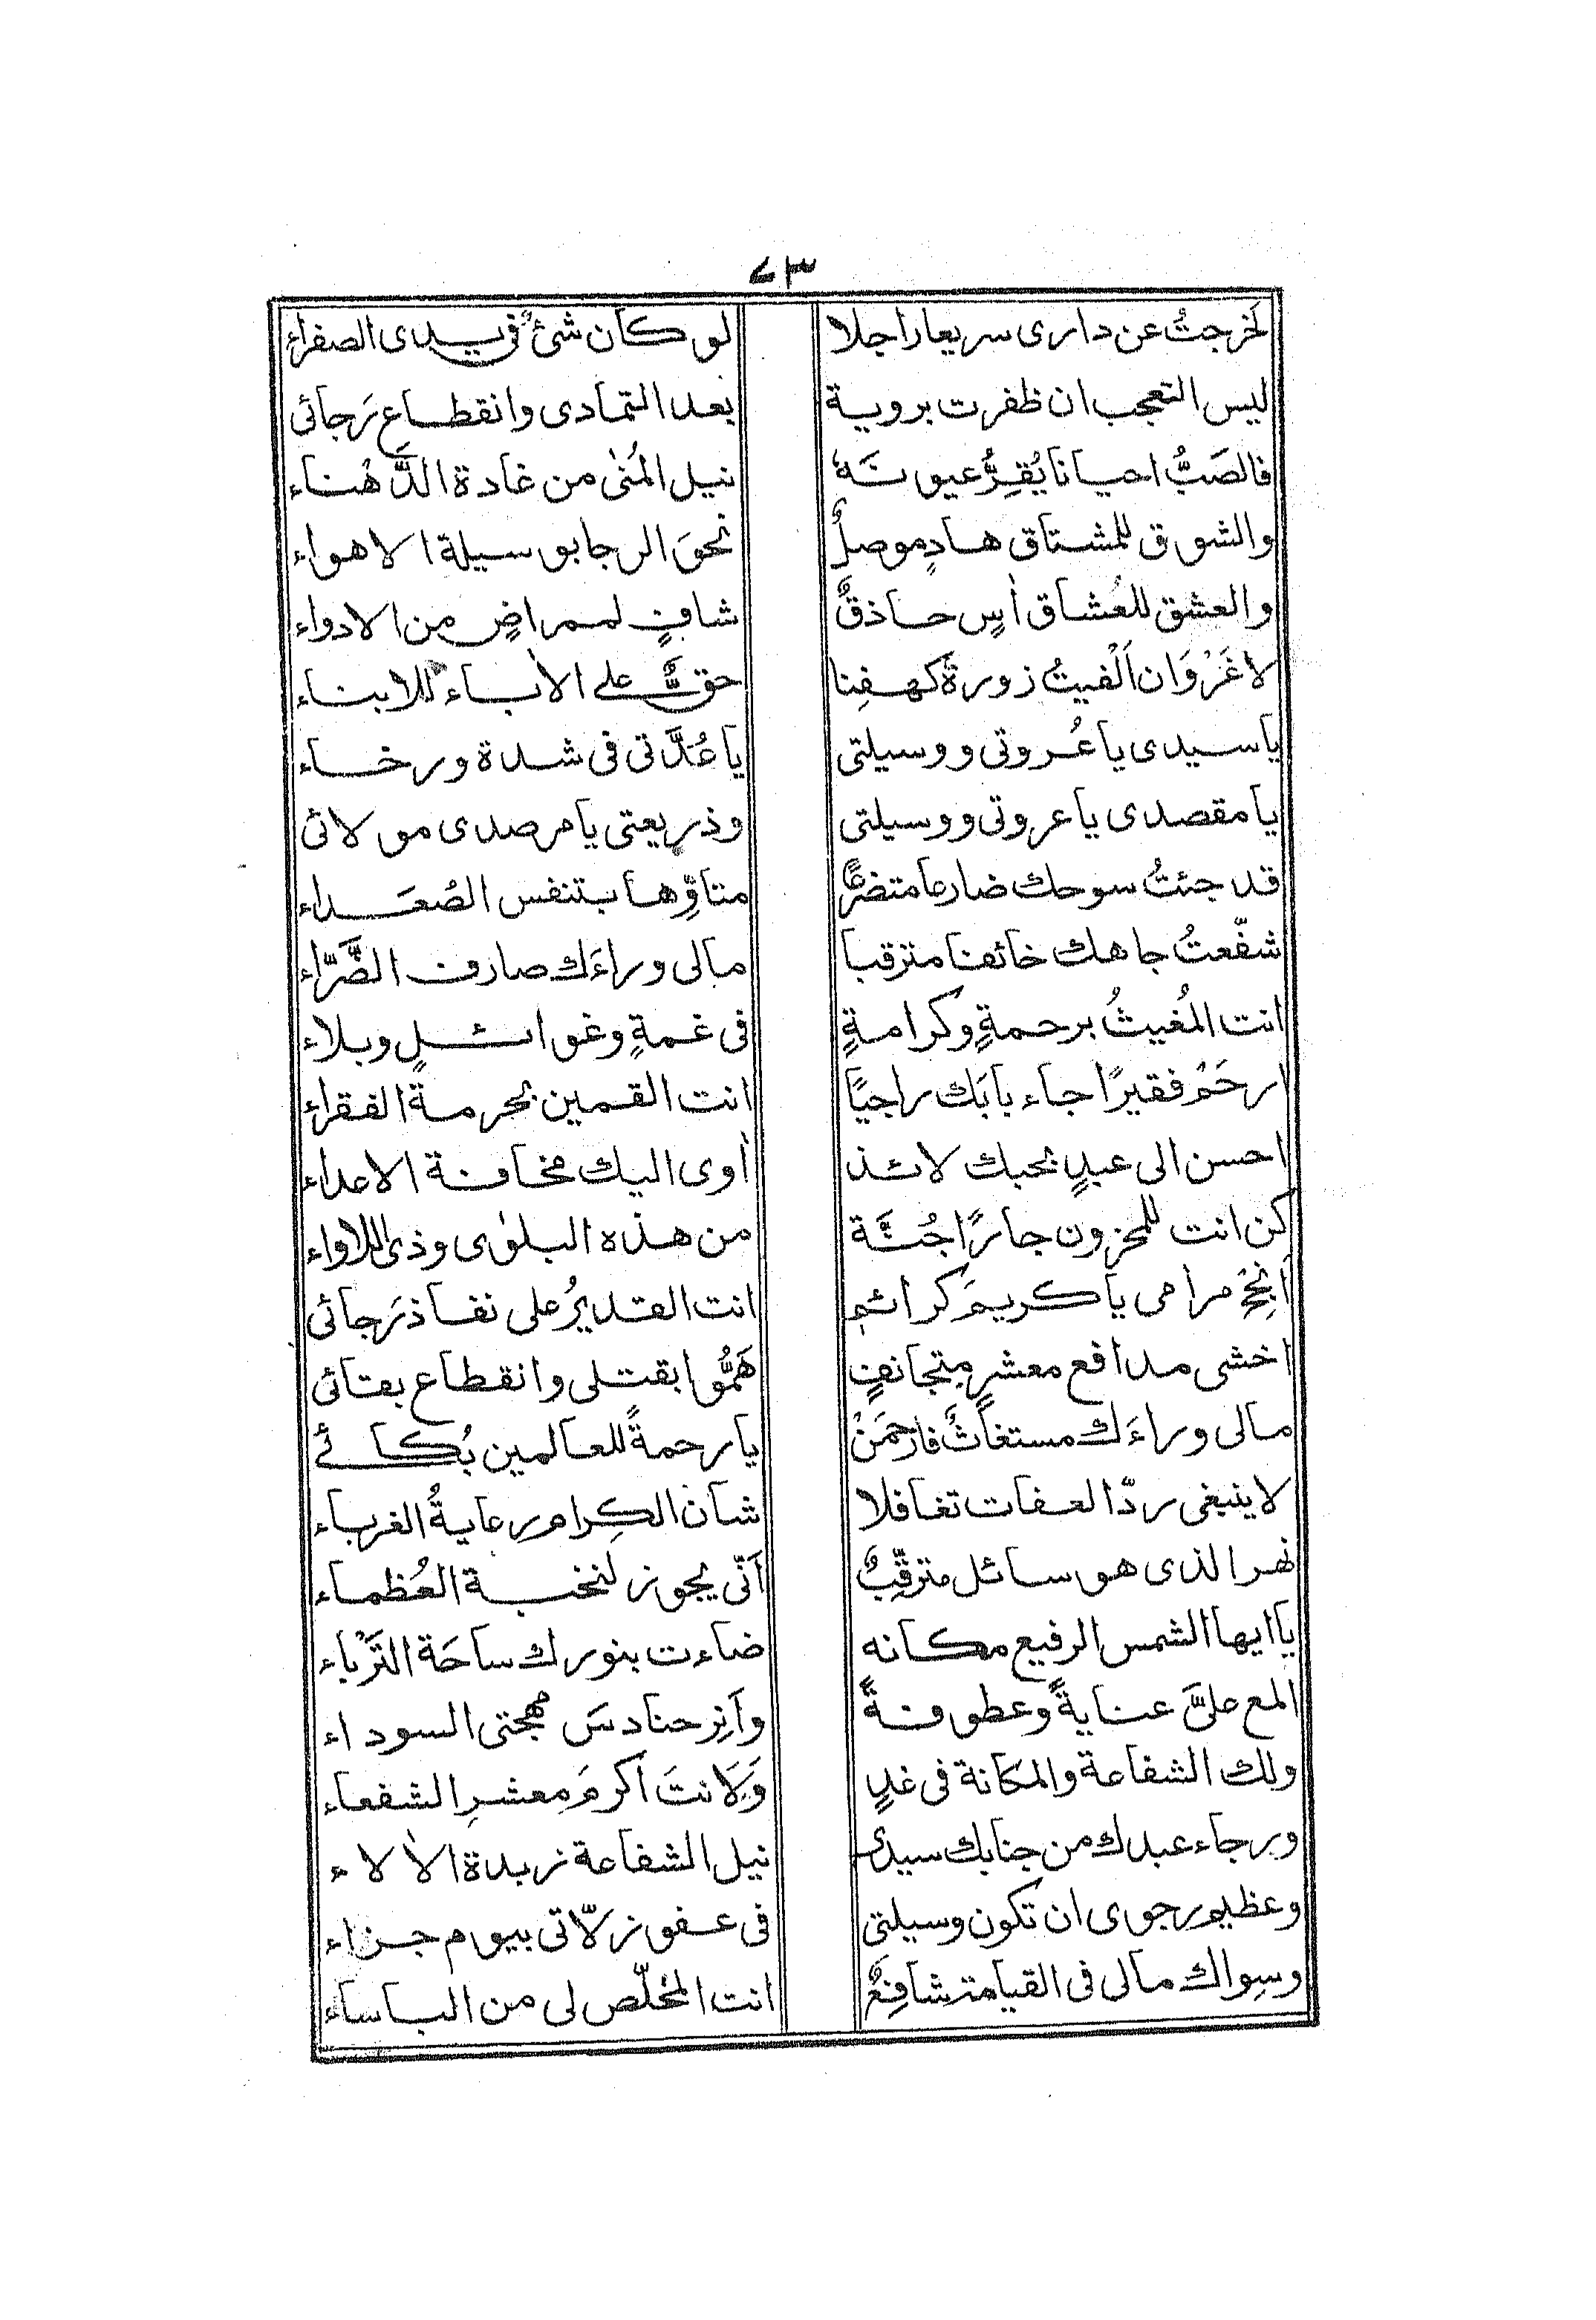 ٧٣
لَخرجتُ عن داری سریعا راجلا لو کان شئٌ فی یدی الصفراءِ
لیس التعجب ان ظفرت برویة بعد التمادی وانقطاع رَجائی
فالصَبُّ احیانا یُقِرُّ عیونَهٗ نیل المُنٰی من غادة الدَّهْناء
والشوق للمشتاق هادٍ موصلٌ نحوَ الرجا بوسیلة الاهواء
والعشق للعُشاق اٰسٍ حاذقٌ شافٍ لممراضٍ من الادواء
لا غَرْوَ ان اَلْفیتُ زورة کهفِنا حقٌّ علی الاٰباء للابناء
یا سیدی یا عُروتی ووسیلتی یا عُدَّتی فی شدة ورخاء
یا مقصدی یا عروتی ووسیلتی وذریعتی یا مرصدی مولائی
قد جئتُ سوحك ضارعا متضرعًا متاوِّها بتنفس الصُعَداء
شفّعتُ جاهك خائفا مترقبا مالی وراءَك صارف الضَّرّاء
انت المُغیثُ برحمةٍ وکرامةٍ فی غمةٍ وغوائلٍ وبلاء
ارحَمْ فقیرًا جاء بابَك راجیًا انت القمین بحرمة الفقراء
احسن الی عبدٍ بحبك لائذ اٰوی الیك مخافة الاعداء
کن انت للمحزون جائرًا جُنَّة من هذه البلوٰی وذی اللاواء
اَنجِحْ مرامی یا کریمَ کرائم انت القدیرُ علی نفاذ رَجائی
اخشی مدافع معشرٍ متجانفٍ هَمُّوا بقتلی وانقطاع بقائی
مالی وراءَك مستغاثٌ فارحَمَنْ یا رحمةً للعالمین بُکائے
لا ینبغی ردّ العفات تغافلا شان الکِرام رعایةُ الغرباء
نهر الذی هو سائل مترقِّبٌ اَنّٰی یجوز لنخبة العُظماء
یا ایها الشمس الرفیع مکانه ضاءت بنورك ساحَة التَرْباء
المع علیَّ عنایةً وعطوفةً واَنِر حنادسَ مهجتی السوداء
ولك الشفاعة والمکانة فی غدٍ وَلَانتَ اکرمَ معشرِ الشفعاء
ورجاء عبدك من جنابك سیدی نیل الشفاعة زبدة الاٰلاء
وعظیم رجوی ان تکون وسیلتی فی عفو زلّاتی بیوم جزاء
وسِواك مالی فی القیامة شافِعٌ انت المُخلّص لی من الباساء